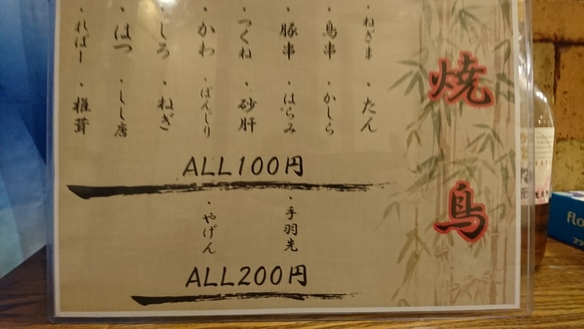 焼鳥
・ねぎま ・たん
・鳥串 ・かしら
・豚串 ・はらみ
・つくね ・砂肝
・かわ ・ぼんじり
・しろ ・ねぎ
・はつ ・しし唐
・ればー ・椎茸
ALL100円
・手羽先
・やげん
ALL200円